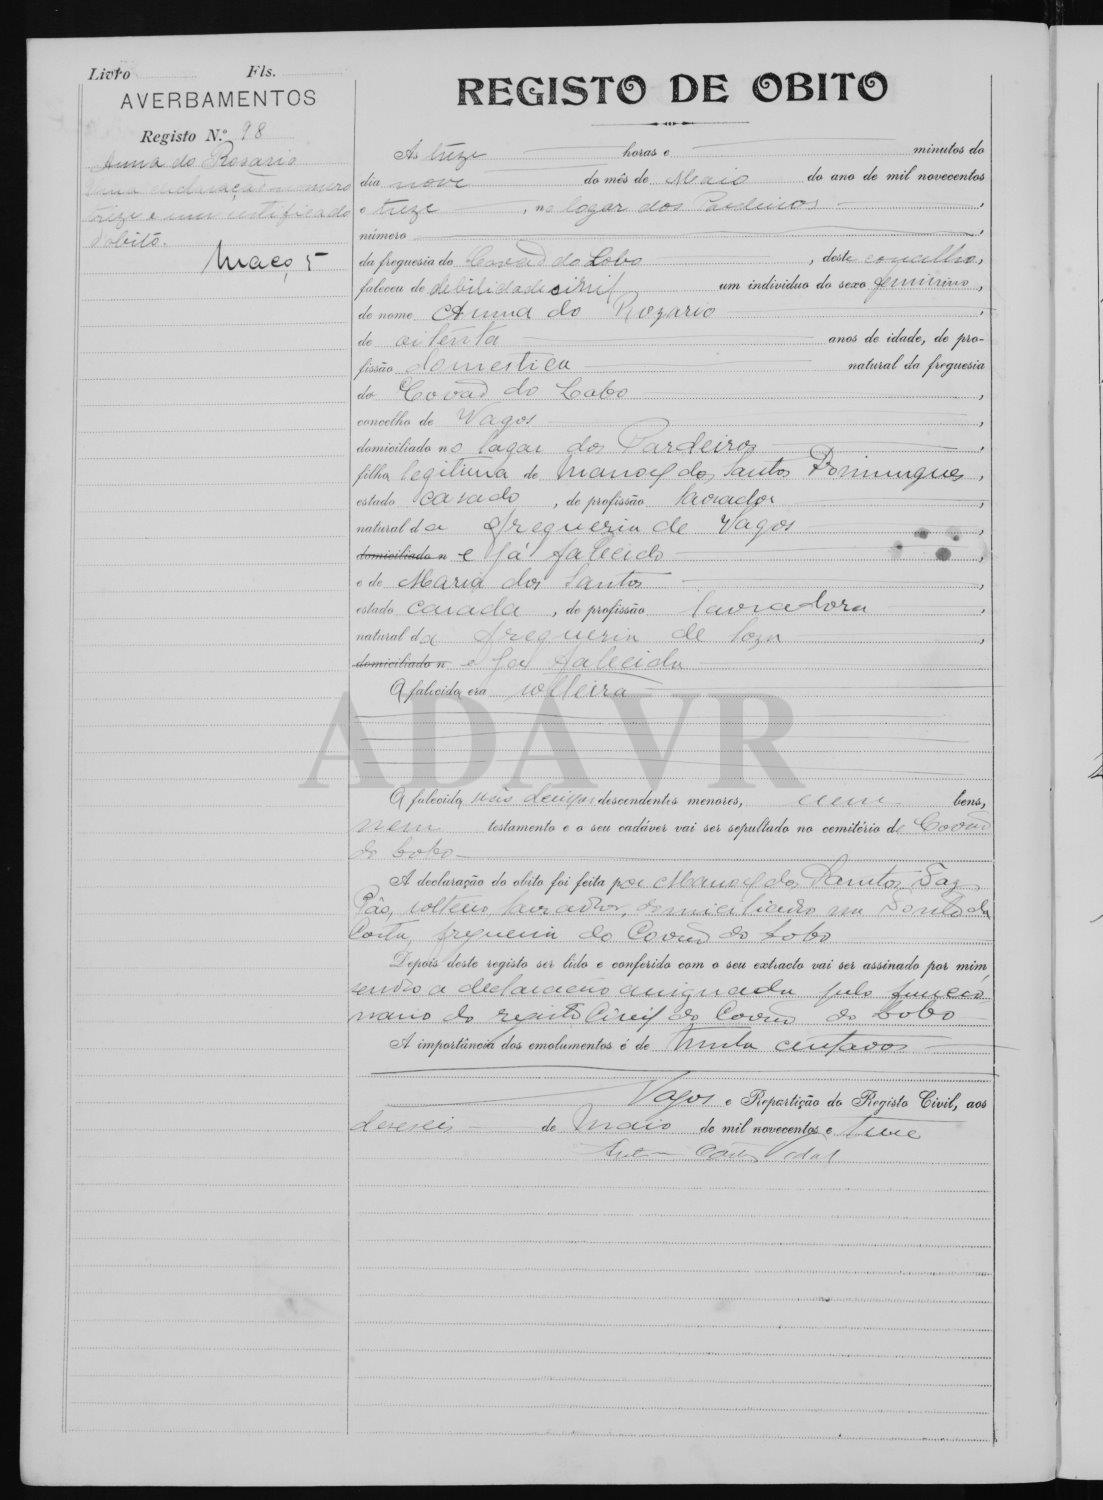 Livro Fls.
AVERBAMENTOS
Registo N.º 98
Anna do Rosario
uma declaração numero
treze e um certificado
d'obito.
Maço 5
REGISTO DE OBITO
As treze horas e minutos do
dia nove do mês de Maio do ano de mil novecentos
e treze, no logar dos Pardeiros,
número
da freguesia do Covão do Lobo, deste concelho,
faleceu de debilidade senil um individuo do sexo feminino,
de nome Anna do Rozario,
de oitenta anos de idade, de pro-
fissão domestica natural da freguesia
do Covão do Lobo,
concelho de Vagos,
domiciliado no logar dos Pardeiros,
filha legitima de Manoel dos Santos Domingues,
estado casado, de profissão lavrador,
natural da freguezia de Vagos,
domiciliado n e já falecido,
e de Maria dos Santos,
estado casada, de profissão lavradora,
natural da freguezia de Soza,
domiciliado n e já falecida
A falecida era solteira
ADAVR
A falecida não deixou descendentes menores, nem bens,
nem testamento e o seu cadáver vai ser sepultado no cemitério de Covão
do Lobo
A declaração do obito foi feita por Manoel dos Santos
solteiro lavrador, domiciliado na
freguezia do Covão do Lobo
Depois deste registo ser lido e conferido com o seu extracto vai ser assinado por mim
sendo a declaração assignada pelo funccio-
nario do registo Civil do Covão do Lobo
A importância dos emolumentos é de trinta centavos
Vagos e Repartição do Registo Civil, aos
dezeseis de Maio de mil novecentos e treze